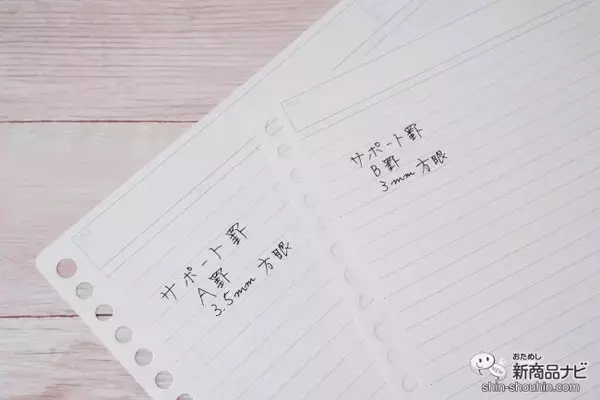 サポート罫
A罫
3.5mm 方眼
サポート罫
B罫
3mm 方眼
おためし
新商品ナビ
shin-shouhin.com